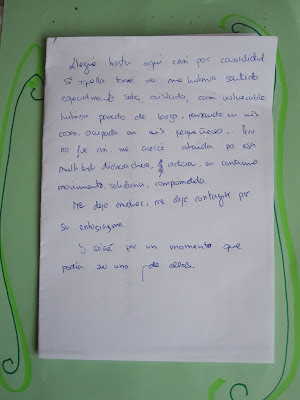 Llegué hasta aquí casi por casualidad
Si aquella tarde no me hubiera sentido
especialmente sola, aislada, casi vulnerable
hubiera pasado de largo, pensando en mis
cosas, ocupada en mis pequeñeces... Pero
no fue así. me acerqué atraída por esa
multitud dicharachera, activa, en continuo
movimiento, solidaria, comprometida.
Me dejé envolver, me dejé contagiar por
su entusiasmo.
Y soñé por un momento que
podía ser uno de ellos.